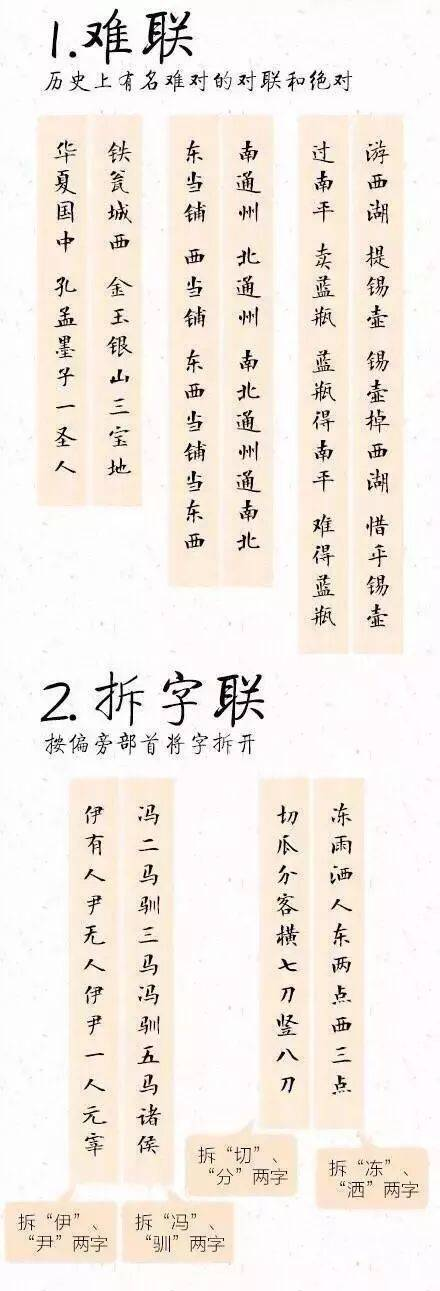 1.难联
历史上有名难对的对联和绝对
游西湖 提锡壶 锡壶掉西湖 惜乎锡壶
过南平 卖蓝瓶 蓝瓶得南平 难得蓝瓶
南通州 北通州 南北通州通南北
东当铺 西当铺 东西当铺当东西
铁瓮城西 金玉银山三宝地
华夏国中 孔孟墨子一圣人
2.拆字联
按偏旁部首将字拆开
冻雨洒人东两点西三点
切瓜分客横七刀竖八刀
冯二马驯三马冯驯五马诸侯
伊有人尹无人伊尹一人元宰
拆“冻”、
“洒”两字
拆“切”、
“分”两字
拆“冯”、
“驯”两字
拆“伊”、
“尹”两字